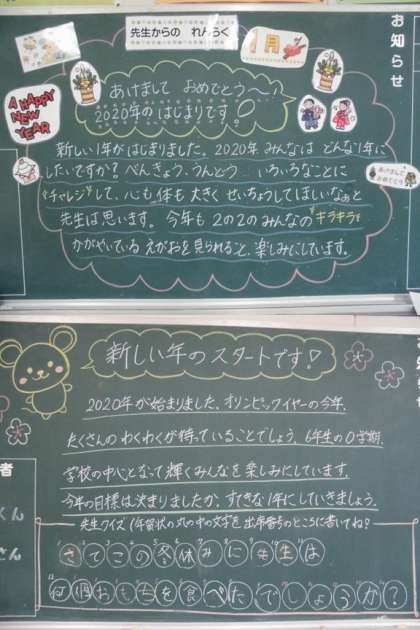 お知らせ
先生からの れんらく
1月
A HAPPY NEW YEAR
あけまして おめでとう〜!
2020年の はじまりです!
新しい1年がはじまりました。2020年 みんなは どんな1年に
したいですか?べんきょう、うんどう…いろいろなことに
"チャレンジ"して、心も 体も 大きく せいちょうしてほしいなぁと
先生は思います。今年も 2の2の みんなの "キラキラ"
かがやいている えがおを見られること、楽しみにしています。
あけまして
おめでとう
新しい年のスタートです!
2020年が始まりました。オリンピックイヤーの今年、
たくさんの わくわくが待っていることでしょう。6年生の0学期、
学校の中心となって 輝くみんなを 楽しみにしています。
今年の目標は 決まりましたか。すてきな1年にしていきましょう。
先生クイズ(年賀状の丸の中の文字を 出席番号のところに書いてね)
さてこの冬休みに先生は
何個おもちを食べたでしょうか?
者
くん
さん